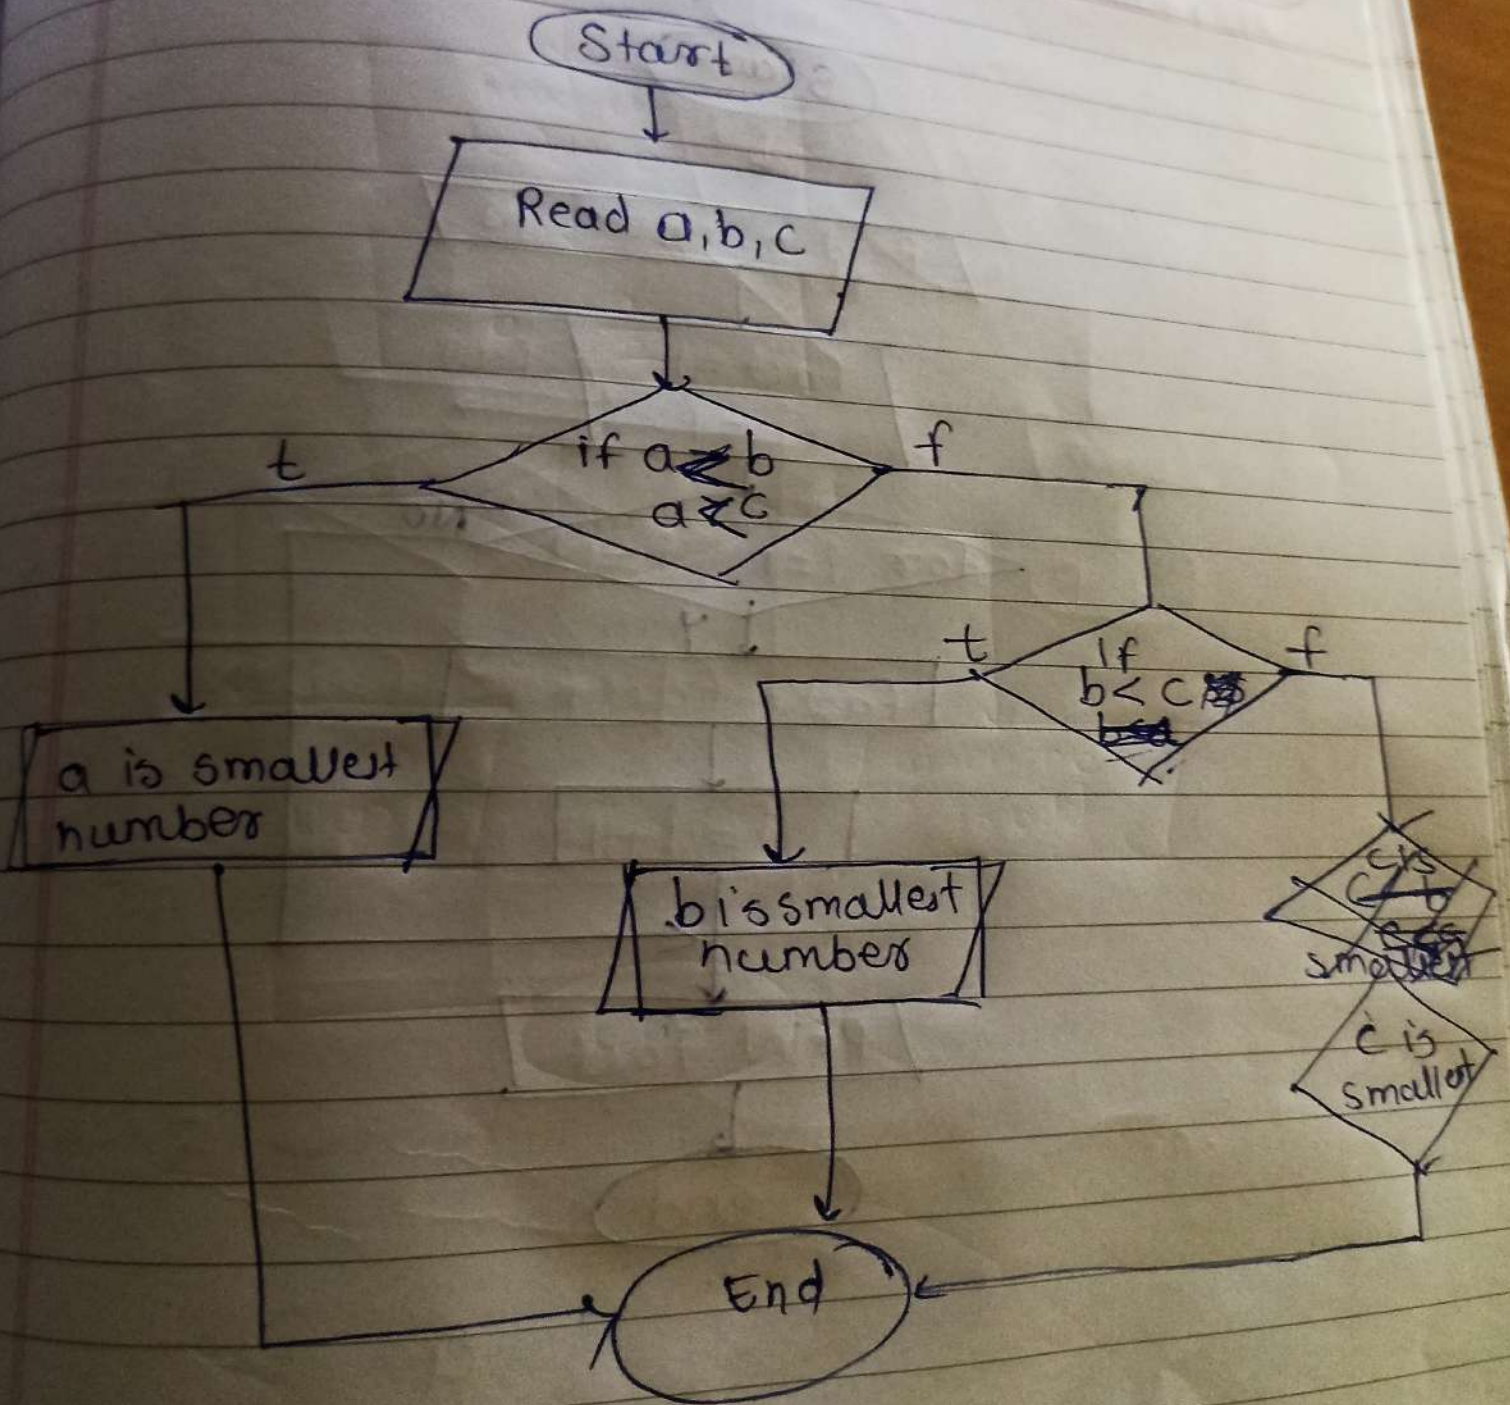 Start
Read a, b, c
if a < b
a < c
t
f
If
b < c
t
f
a is smallest
number
b is smallest
number
smallest
c is
smallest
End